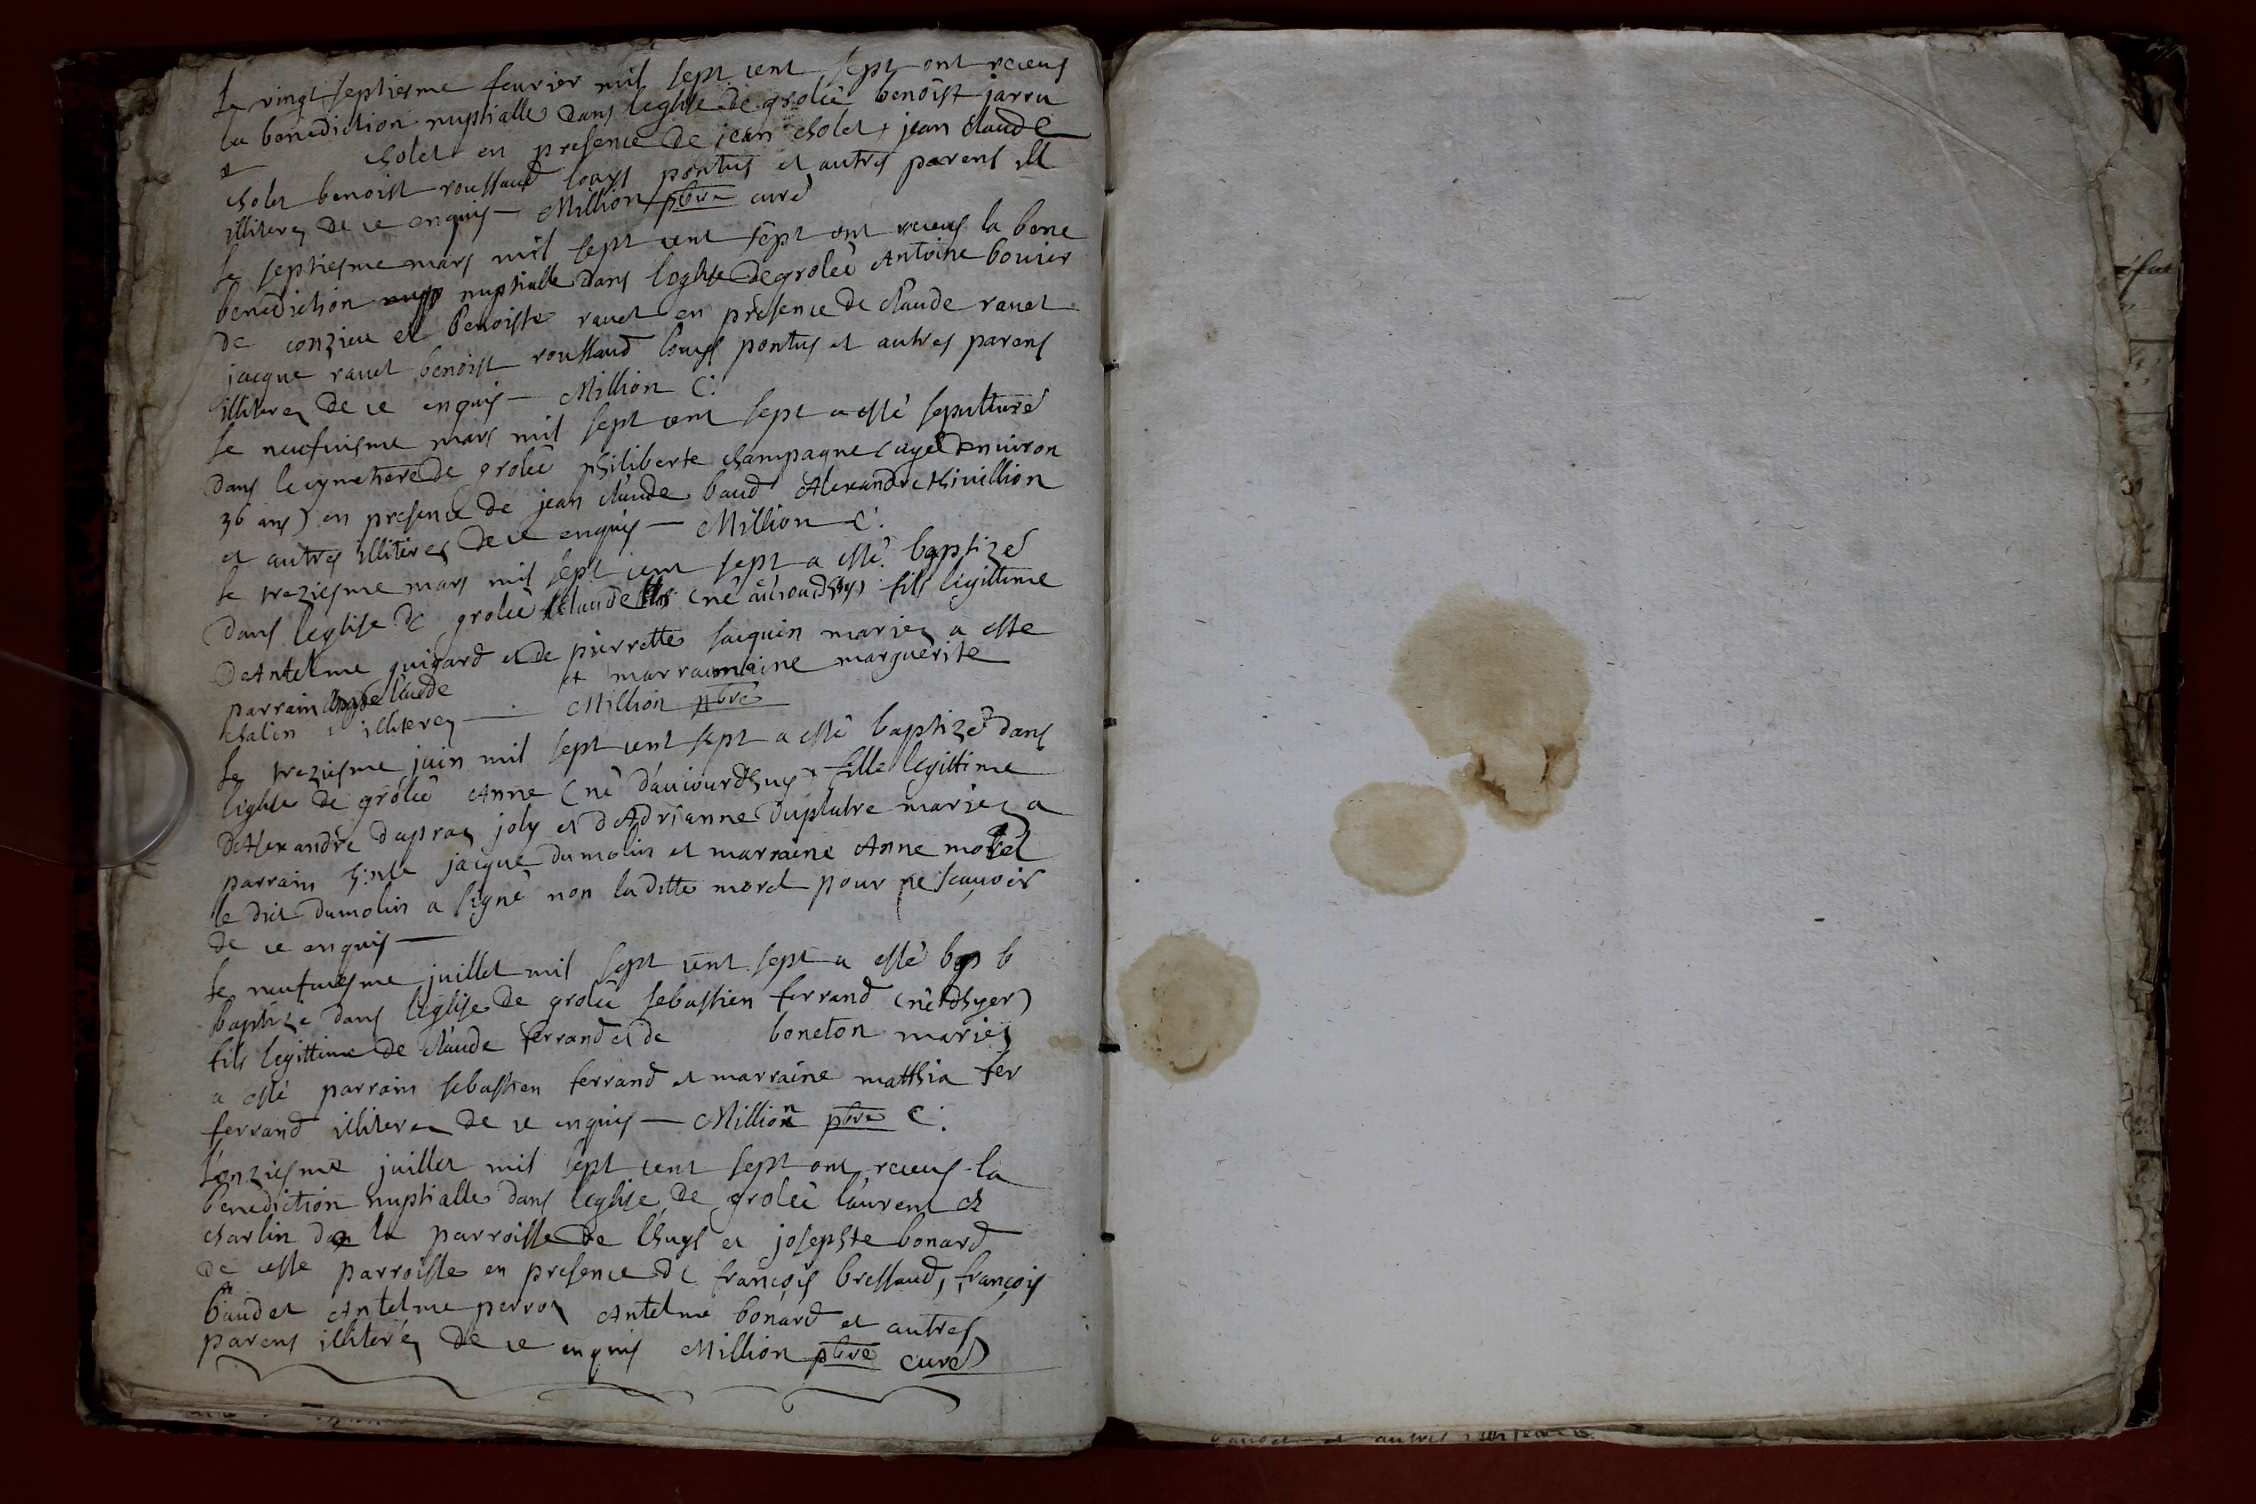 Le vingt septiesme feurier mil sept cent sept ont receus
la benediction nuptialle dans leglise de groleé benoist jarru
et cholet en presence de jean cholet, jean claude
cholet benoist roussaud louys pontus et autres parens ill
illiterez de ce enquis — Million pbre curé
Le septiesme mars mil sept cent sept ont receus la bene
benediction nuptialle dans leglise de groleé Antoine bouier
de conzieu et benoiste rauet en presence de claude rauet
jacque rauet benoist roussaud louys pontus et autres parens
illiterez de ce enquis — Million C.
Le neufuiesme mars mil sept cent sept a esté sepulturé
dans le cymetiere de groleé philiberte champagne (agé denuiron
36 ans) en presence de jean claude baud Alexandre thiuillion
et autres illiterez de ce enquis — Million C.
Le treziesme mars mil sept cent sept a esté baptizé
dans leglise de groleé claude (né aujourdhuy) fils legittime
dAntelme guigard et de pierrette jacquin mariez a este
parrain claude et marraine marguerite
chalin illiterez — Million pbre
Le treziesme juin mil sept cent sept a esté baptizé dans
leglise de groleé Anne (né daujourdhuy) fille legittime
dAlexandre dupraz joly et dAdrianne duplatre mariez a
parrain jacque dumolin et marraine Anne morel
le dict dumolin a signé non laditte morel pour ne scauoir
de ce enquis —
Le neufuiesme juillet mil sept cent sept a esté bap b
baptize dans leglise de groleé sebastien ferrand (né dhyer)
fils legittime de claude ferrand et de boneton mariez
a esté parrain sebastien ferrand et marraine matthia fer
ferrand illiterez de ce enquis — Million pbre C.
Lonziesme juillet mil sept cent sept ont receus la
benediction nuptialle dans leglise de groleé laurent ch
charlin de la parroisse de lhuys et josephte bonard
de cette parroisse en presence de françois bressaud, françois
baudet Antelme perroz Antelme bonard et autres
parens illiterez de ce enquis Million pbre curé